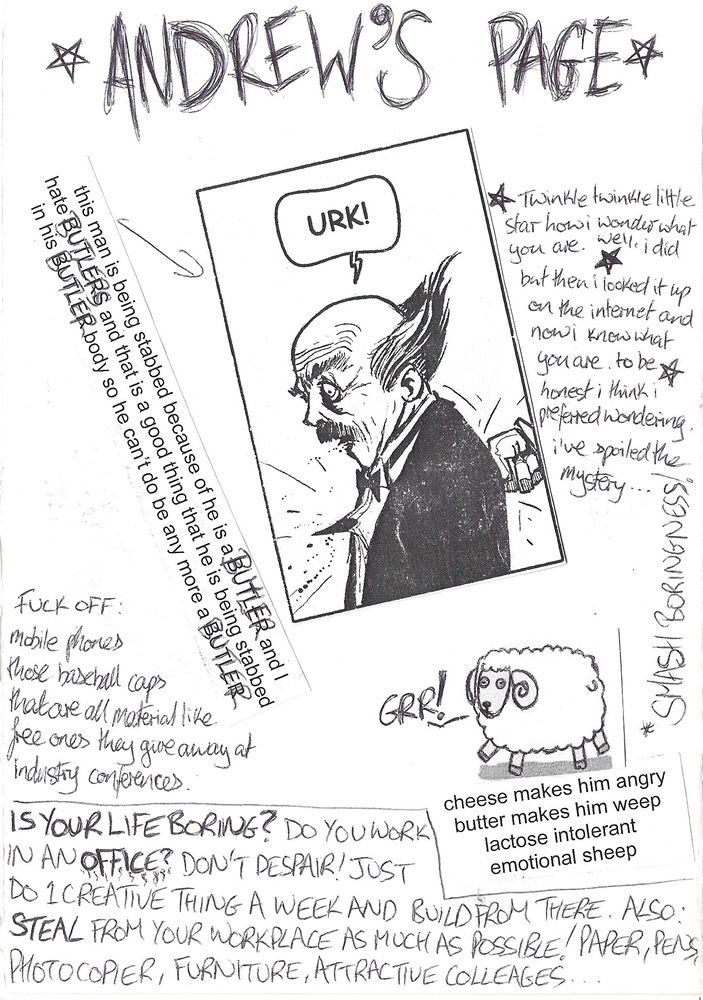 ANDREW'S PAGE
URK!
this man is being stabbed because of he is a BUTLER and I
hate BUTLERS and that is a good thing that he is being stabbed
in his BUTLER body so he can't do be any more a BUTLER
Twinkle twinkle little
star how i wonder what
you are. well. i did
but then i looked it up
on the internet and
now i know what
you are. to be
honest i think i
preferred wondering.
i've spoiled the
mystery...
* SMASH BORINGNESS!
FUCK OFF:
mobile phones
those baseball caps
that are all material like
free ones they give away at
industry conferences.
GRR!
cheese makes him angry
butter makes him weep
lactose intolerant
emotional sheep
IS YOUR LIFE BORING? DO YOU WORK
IN AN OFFICE? DON'T DESPAIR! JUST
DO 1 CREATIVE THING A WEEK AND BUILD FROM THERE. ALSO:
STEAL FROM YOUR WORKPLACE AS MUCH AS POSSIBLE! PAPER, PENS,
PHOTOCOPIER, FURNITURE, ATTRACTIVE COLLEAGES...